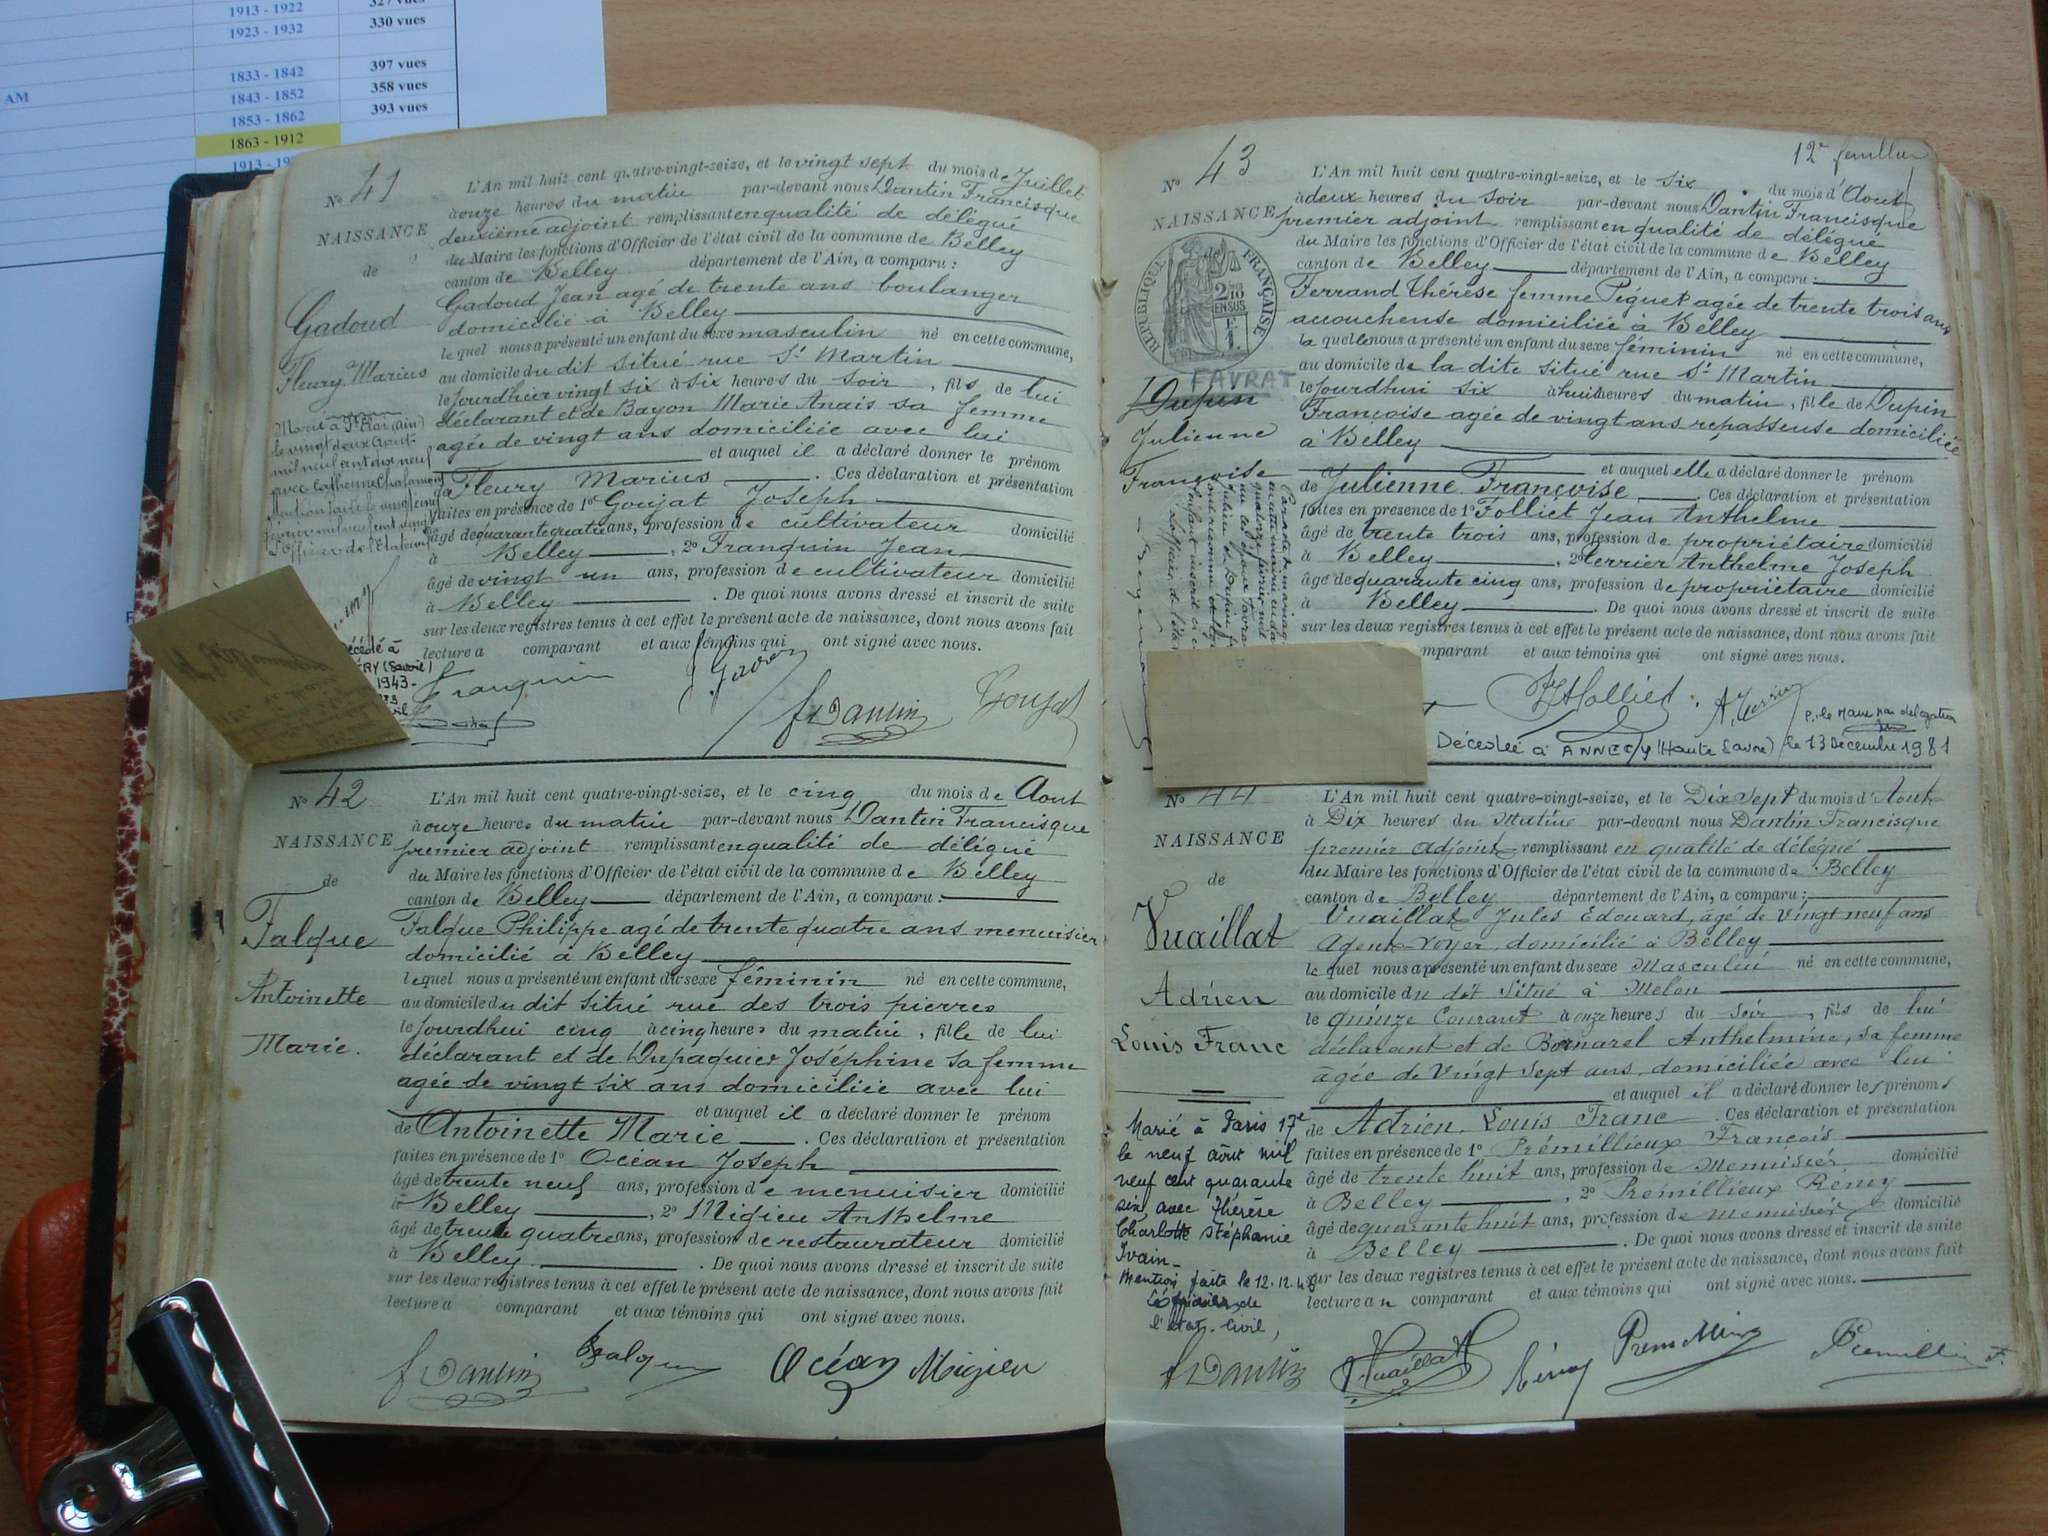 1913 - 1922 327 vues
1923 - 1932 330 vues
1833 - 1842 397 vues
AM 1843 - 1852 358 vues
1853 - 1862 393 vues
1863 - 1912
N° 41
NAISSANCE
de
Gadoud
Fleury Marius
L'An mil huit cent quatre-vingt-seize, et le vingt sept du mois de Juillet
à onze heures du matin par-devant nous Dantin Francisque
deuxième adjoint remplissant en qualité de délégué
du Maire les fonctions d'Officier de l'état civil de la commune de Belley
canton de Belley département de l'Ain, a comparu :
Gadoud Jean agé de trente ans boulanger
domicilié à Belley
le quel nous a présenté un enfant du sexe masculin né en cette commune,
au domicile du dit situé rue St Martin
le jourdhier vingt six à six heures du soir, fils de lui
déclarant et de Bayon Marie Anais sa femme
agée de vingt ans domiciliée avec lui
et auquel il a déclaré donner le prénom
de Fleury Marius. Ces déclaration et présentation
faites en présence de 1° Goujat Joseph
âgé de quarante quatre ans, profession de cultivateur domicilié
à Belley, 2° Franquin Jean
âgé de vingt un ans, profession de cultivateur domicilié
à Belley. De quoi nous avons dressé et inscrit de suite
sur les deux registres tenus à cet effet le présent acte de naissance, dont nous avons fait
lecture a comparant et aux témoins qui ont signé avec nous.
Marié à
le vingt deux Aout
mil neuf cent dix neuf
avec Catherine
l'Officier de l'Etat civil
écédé à
RY (Savoie)
1943
Franquin
f Dantin
Goujat
N° 42
NAISSANCE
de
Falque
Antoinette
Marie.
L'An mil huit cent quatre-vingt-seize, et le cinq du mois de Aout
à onze heures du matin par-devant nous Dantin Francisque
premier adjoint remplissant en qualité de délégué
du Maire les fonctions d'Officier de l'état civil de la commune de Belley
canton de Belley département de l'Ain, a comparu :
Falque Philippe agé de trente quatre ans menuisier
domicilié à Belley
le quel nous a présenté un enfant du sexe féminin né en cette commune,
au domicile du dit situé rue des trois pierres
le jourdhui cinq à cinq heures du matin, fille de lui
déclarant et de Dupaquier Joséphine sa femme
agée de vingt six ans domiciliée avec lui
et auquel il a déclaré donner le prénom
de Antoinette Marie. Ces déclaration et présentation
faites en présence de 1° Océan Joseph
âgé de trente neuf ans, profession de menuisier domicilié
à Belley, 2° Migieu Anthelme
âgé de trente quatre ans, profession de restaurateur domicilié
à Belley. De quoi nous avons dressé et inscrit de suite
sur les deux registres tenus à cet effet le présent acte de naissance, dont nous avons fait
lecture a comparant et aux témoins qui ont signé avec nous.
f Dantin Falque Océan Migieu
12e feuillet
N° 43
NAISSANCE
de
REPUBLIQUE FRANÇAISE
2/10 EN SUS
FAVRAT
Dupin
Julienne
Françoise
L'An mil huit cent quatre-vingt-seize, et le six du mois d'Aout
à deux heures du soir par-devant nous Dantin Francisque
premier adjoint remplissant en qualité de délégué
du Maire les fonctions d'Officier de l'état civil de la commune de Belley
canton de Belley département de l'Ain, a comparu :
Ferrand Thérèse femme Peguet agée de trente trois ans
accoucheuse domiciliée à Belley
la quelle nous a présenté un enfant du sexe féminin né en cette commune,
au domicile de la dite situé rue St Martin
le jourdhui six à huit heures du matin, fille de Dupin
Françoise agée de vingt ans repasseuse domiciliée
à Belley
et auquel elle a déclaré donner le prénom
de Julienne Françoise. Ces déclaration et présentation
faites en présence de 1° Folliet Jean Anthelme
âgé de trente trois ans, profession de propriétaire domicilié
à Belley, 2° Terrier Anthelme Joseph
âgé de quarante cinq ans, profession de propriétaire domicilié
à Belley. De quoi nous avons dressé et inscrit de suite
sur les deux registres tenus à cet effet le présent acte de naissance, dont nous avons fait
mparant et aux témoins qui ont signé avec nous.
P. le Maire par délégation
Décédée à ANNECY (Haute Savoie) le 13 Décembre 1981
N° 44
NAISSANCE
de
Vuaillat
Adrien
Louis Franc
L'An mil huit cent quatre-vingt-seize, et le Dix Sept du mois d'Aout
à Dix heures du Matin par-devant nous Dantin Francisque
premier adjoint remplissant en qualité de délégué
du Maire les fonctions d'Officier de l'état civil de la commune de Belley
canton de Belley département de l'Ain, a comparu :
Vuaillat Jules Edouard, âgé de vingt neuf ans
Agent-Voyer, domicilié à Belley
le quel nous a présenté un enfant du sexe Masculin né en cette commune,
au domicile du dit Situé à Melon
le quinze Courant à onze heures du Soir, fils de lui
déclarant et de Bornarel Anthelmine, sa femme
âgée de Vingt Sept ans, domiciliée avec lui
et auquel il a déclaré donner les prénoms
de Adrien, Louis Franc Ces déclaration et présentation
faites en présence de 1° Prémillieux François
âgé de trente huit ans, profession de Menuisier domicilié
à Belley, 2° Prémillieux Rémy
âgé de quarante huit ans, profession de menuisier domicilié
à Belley. De quoi nous avons dressé et inscrit de suite
sur les deux registres tenus à cet effet le présent acte de naissance, dont nous avons fait
lecture au comparant et aux témoins qui ont signé avec nous.
Marié à Paris 17e
le neuf août mil
neuf cent quarante
six avec Thérèse
Charlotte Stéphanie
Ivain
Mention faite le 12.12.46
L'officier de
l'état-Civil,
f Dantin Vuaillat